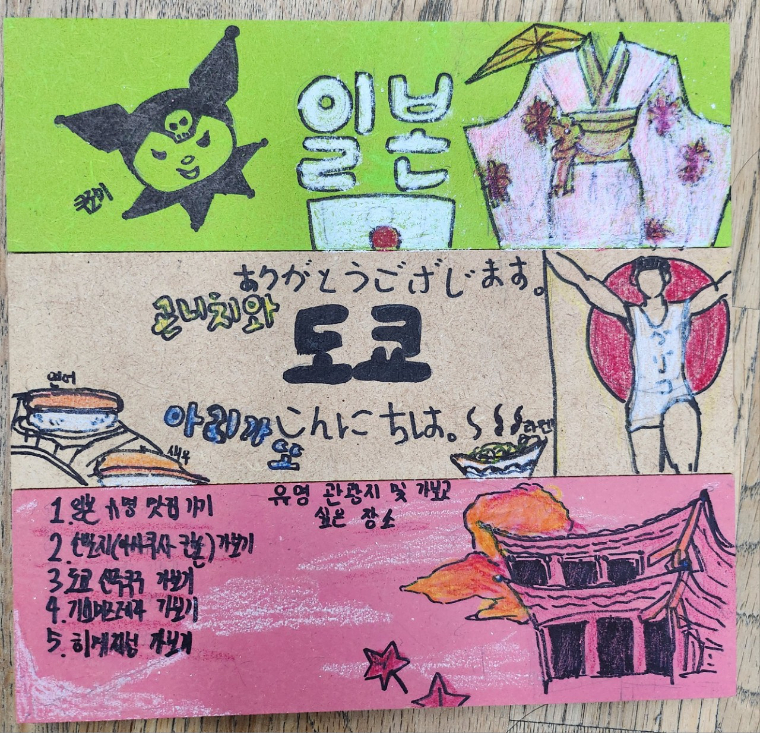 일본
쿠로미
ありがとうござじます。
곤니치와
도쿄
연어
새우
아리가또
こんにちは。
라멘
유명 관광지 및 가보고
싶은 장소
1. 일본 유명 맛집 가기
2. 센소지(아사쿠사 관음) 가보기
3. 도쿄 신주쿠 가보기
4. 기요미즈데라 가보기
5. 히메지성 가보기